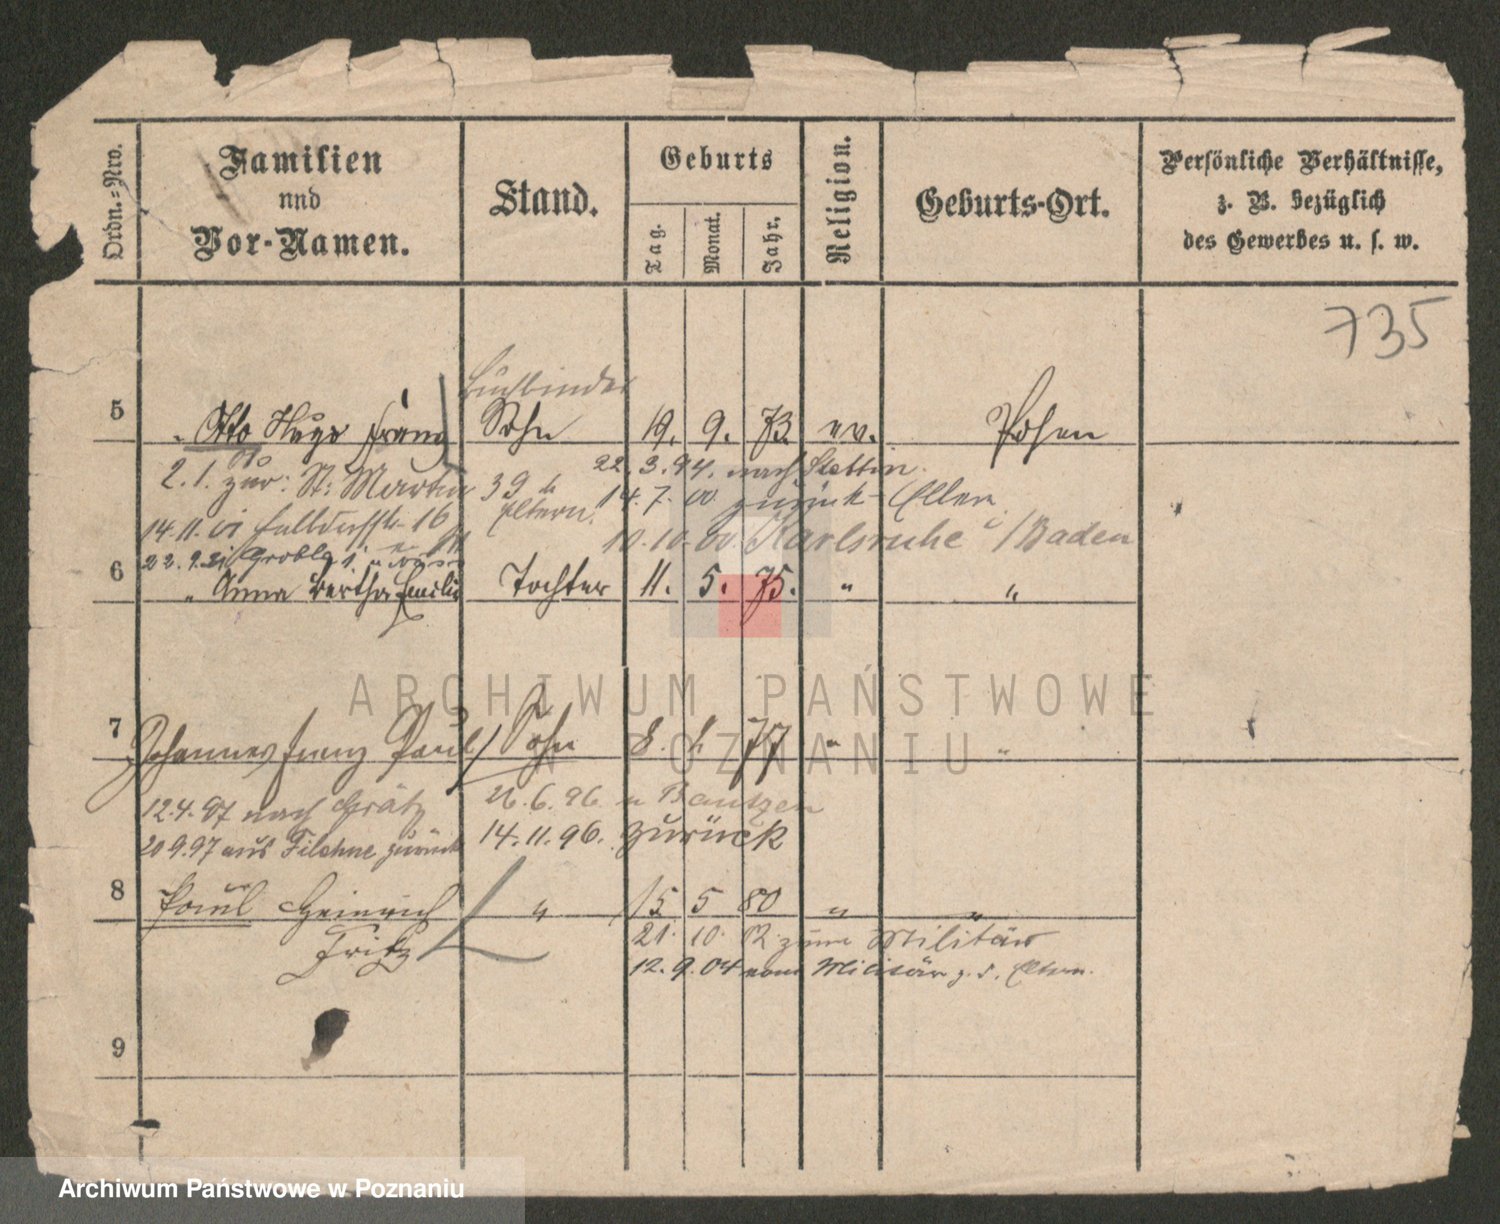 Ordn.=Nro.
Familien
und
Vor-Namen.
Stand.
Geburts
Tag.
Monat.
Jahr.
Religion.
Geburts-Ort.
Persönliche Verhältnisse,
z. B. bezüglich
des Gewerbes u. s. w.
735
Buchbinder
5 Otto Hugo Franz Sohn 19. 9. 73 ev. Posen
22.3.94. nach Stettin.
Otto
2.1. zur: St: Martin 39 b
Eltern.
14.7.00 zurück Eltern
14.11.01 16
10.10.00. Karlsruhe i/Baden
22.9.
6 " Anna Bertha Emilie Tochter 11. 5. 75. " "
7 Johannes Franz Paul Sohn 8. 77 " "
12.4.97 nach Grätz
26.6.96 n Bautzen
20.9.97 aus Filehne zurück
14.11.96. zurück
8 Paul Heinrich " 15 5 80 " "
Fritz
21. 10. 02. zum Militär
12.9.04 vom Militär z. d. Eltern.
9
ARCHIWUM PAŃSTWOWE
W POZNANIU
Archiwum Państwowe w Poznaniu